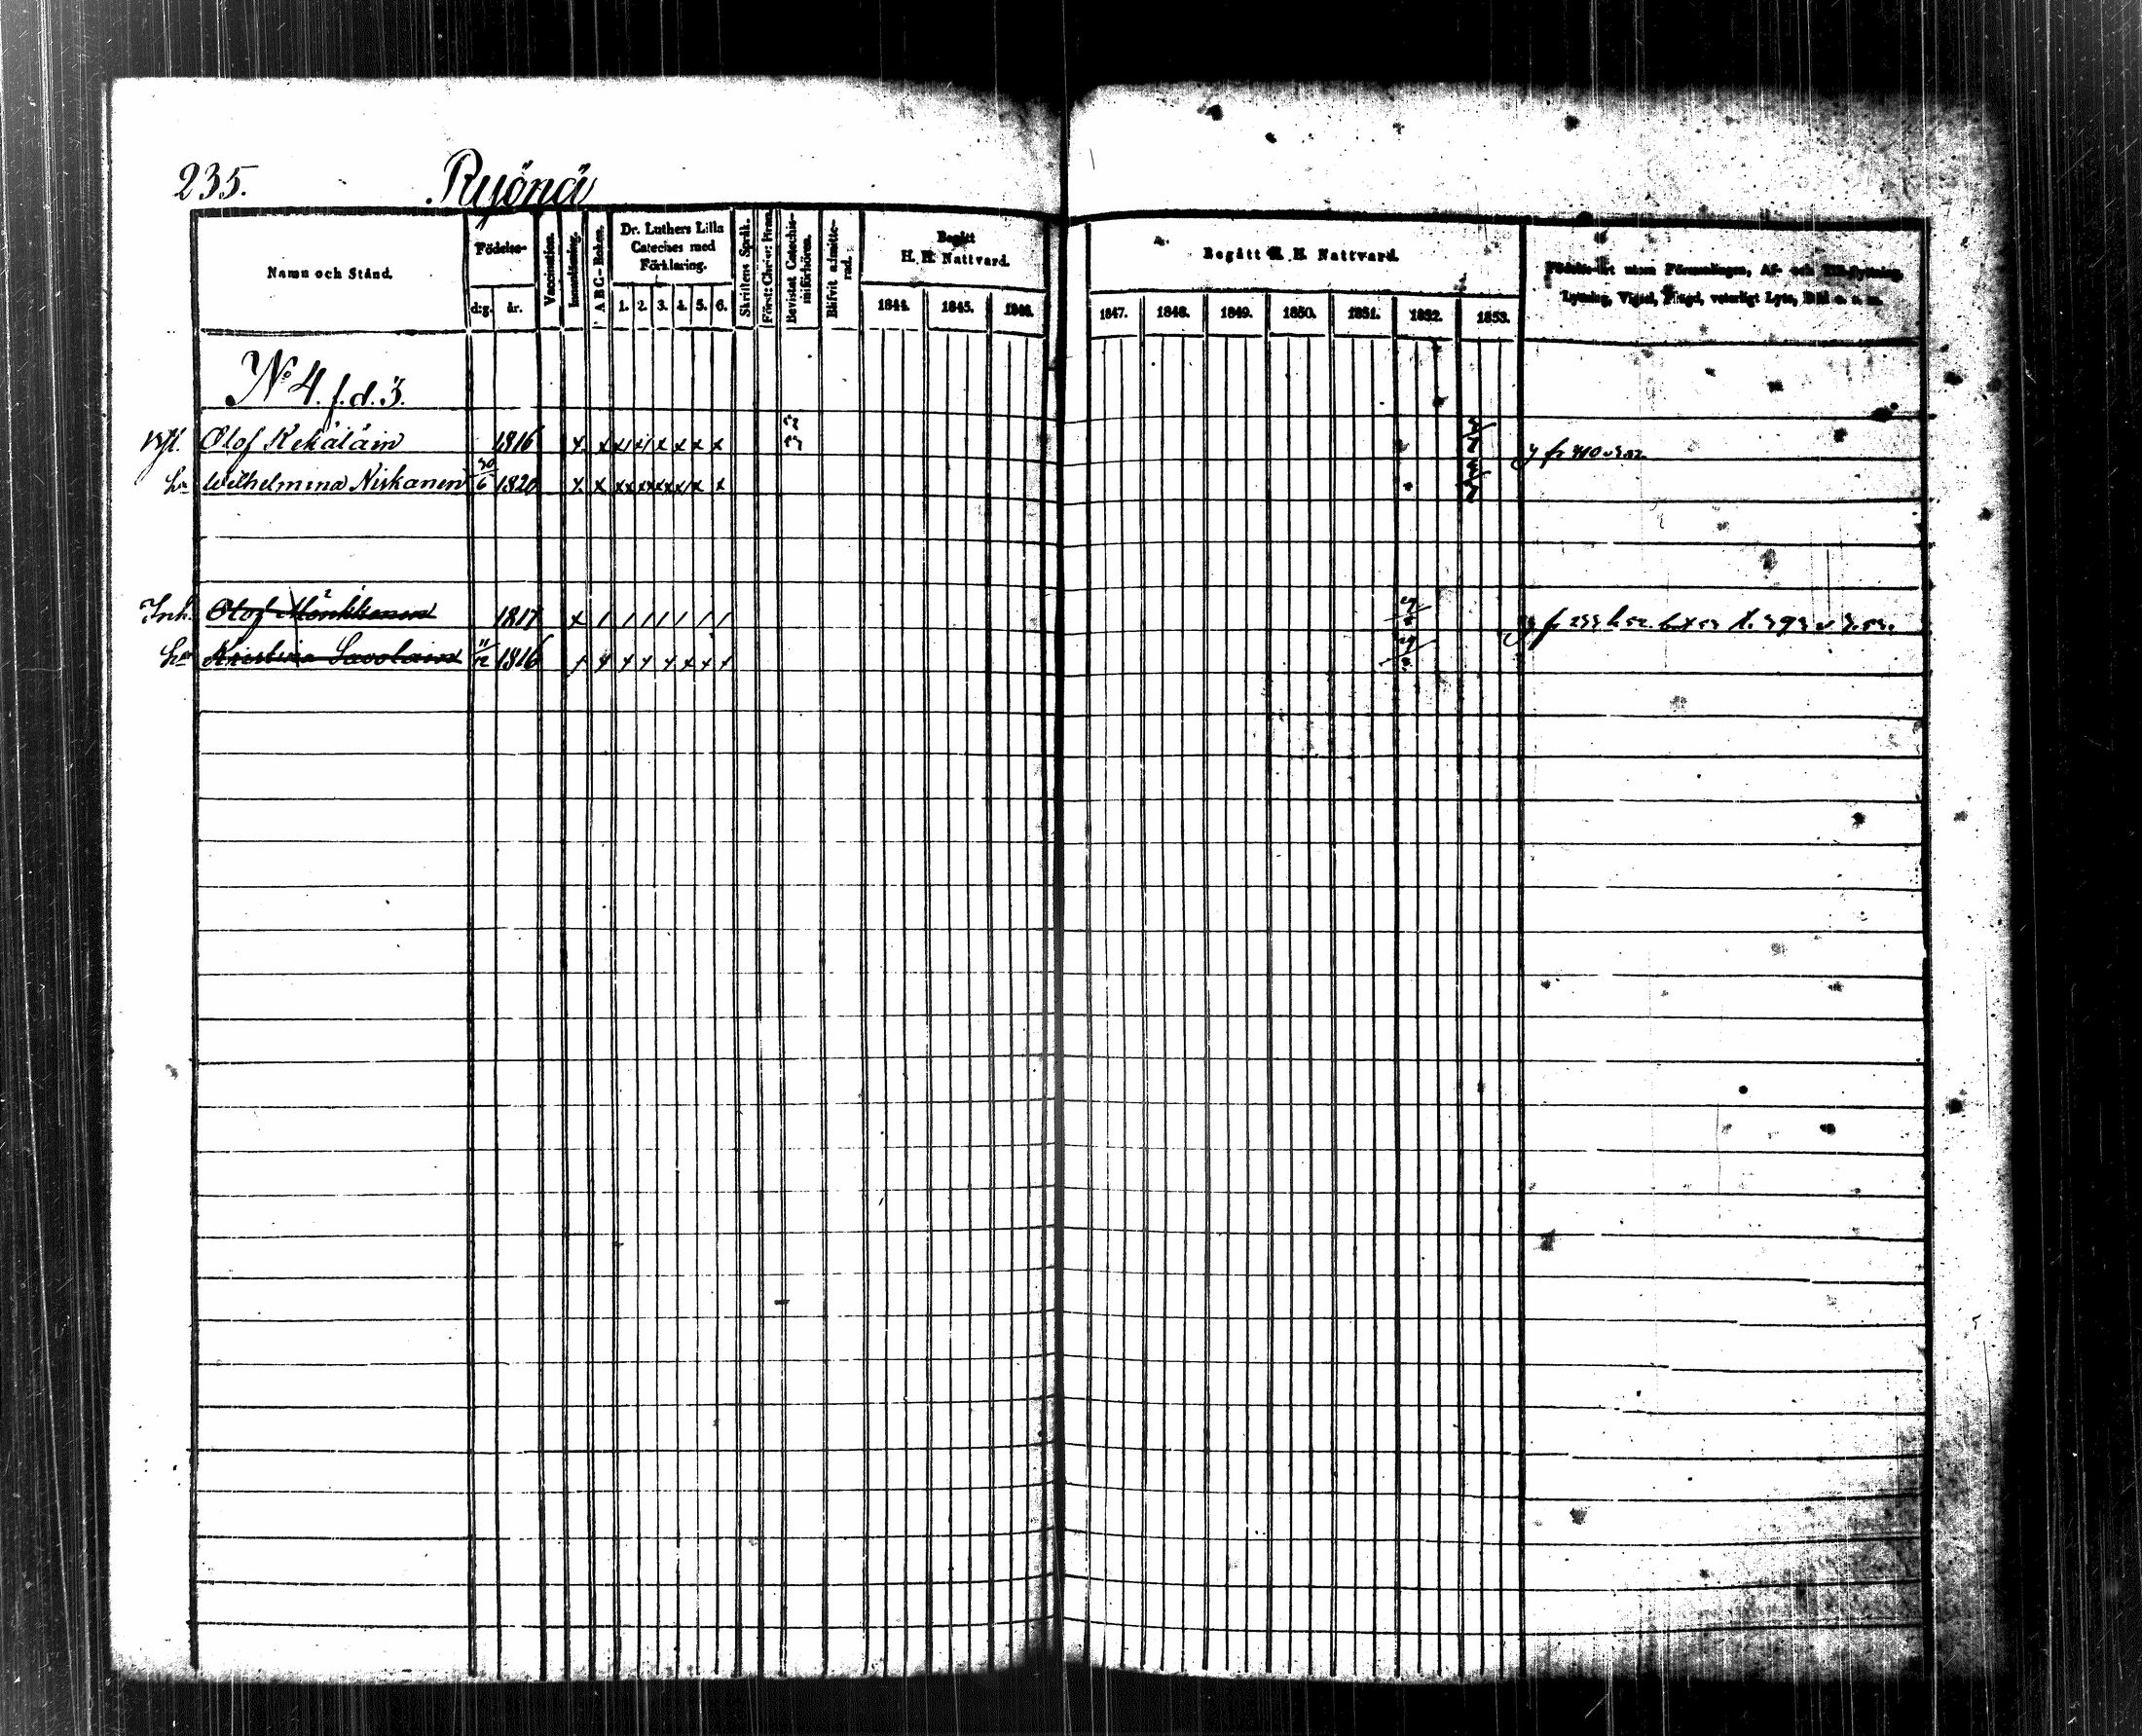 235. Ryönä
Namn och Stånd.
Födelse-
d:g. år.
Vaccination.
Innanläsning.
A B C-Boken.
Dr. Luthers Lilla
Cateches med
Förklaring.
1. 2. 3. 4. 5. 6.
Skriftens Språk.
Bevistat Catechis-
miförhören.
Blifvit admitte-
rad.
Begått
H. H. Nattvard.
1844. 1845. 1846.
Begått H. H. Nattvard.
1847. 1848. 1849. 1850. 1851. 1852. 1853.
Födelse-ort utom Församlingen, Af- och Tillflyttning,
Lysning, Vigsel, Frägd, veterligt Lyte, Död o. s. m.
No 4. f.d. 3.
Olof Kekäläin 1816 x x x x x x
hu Wilhelmina Niskanen 30/6 1820 x x
Inh. Olof Mönkkönen 1817 x / / / / / / /
hu Kristina Savolain 11/12 1816